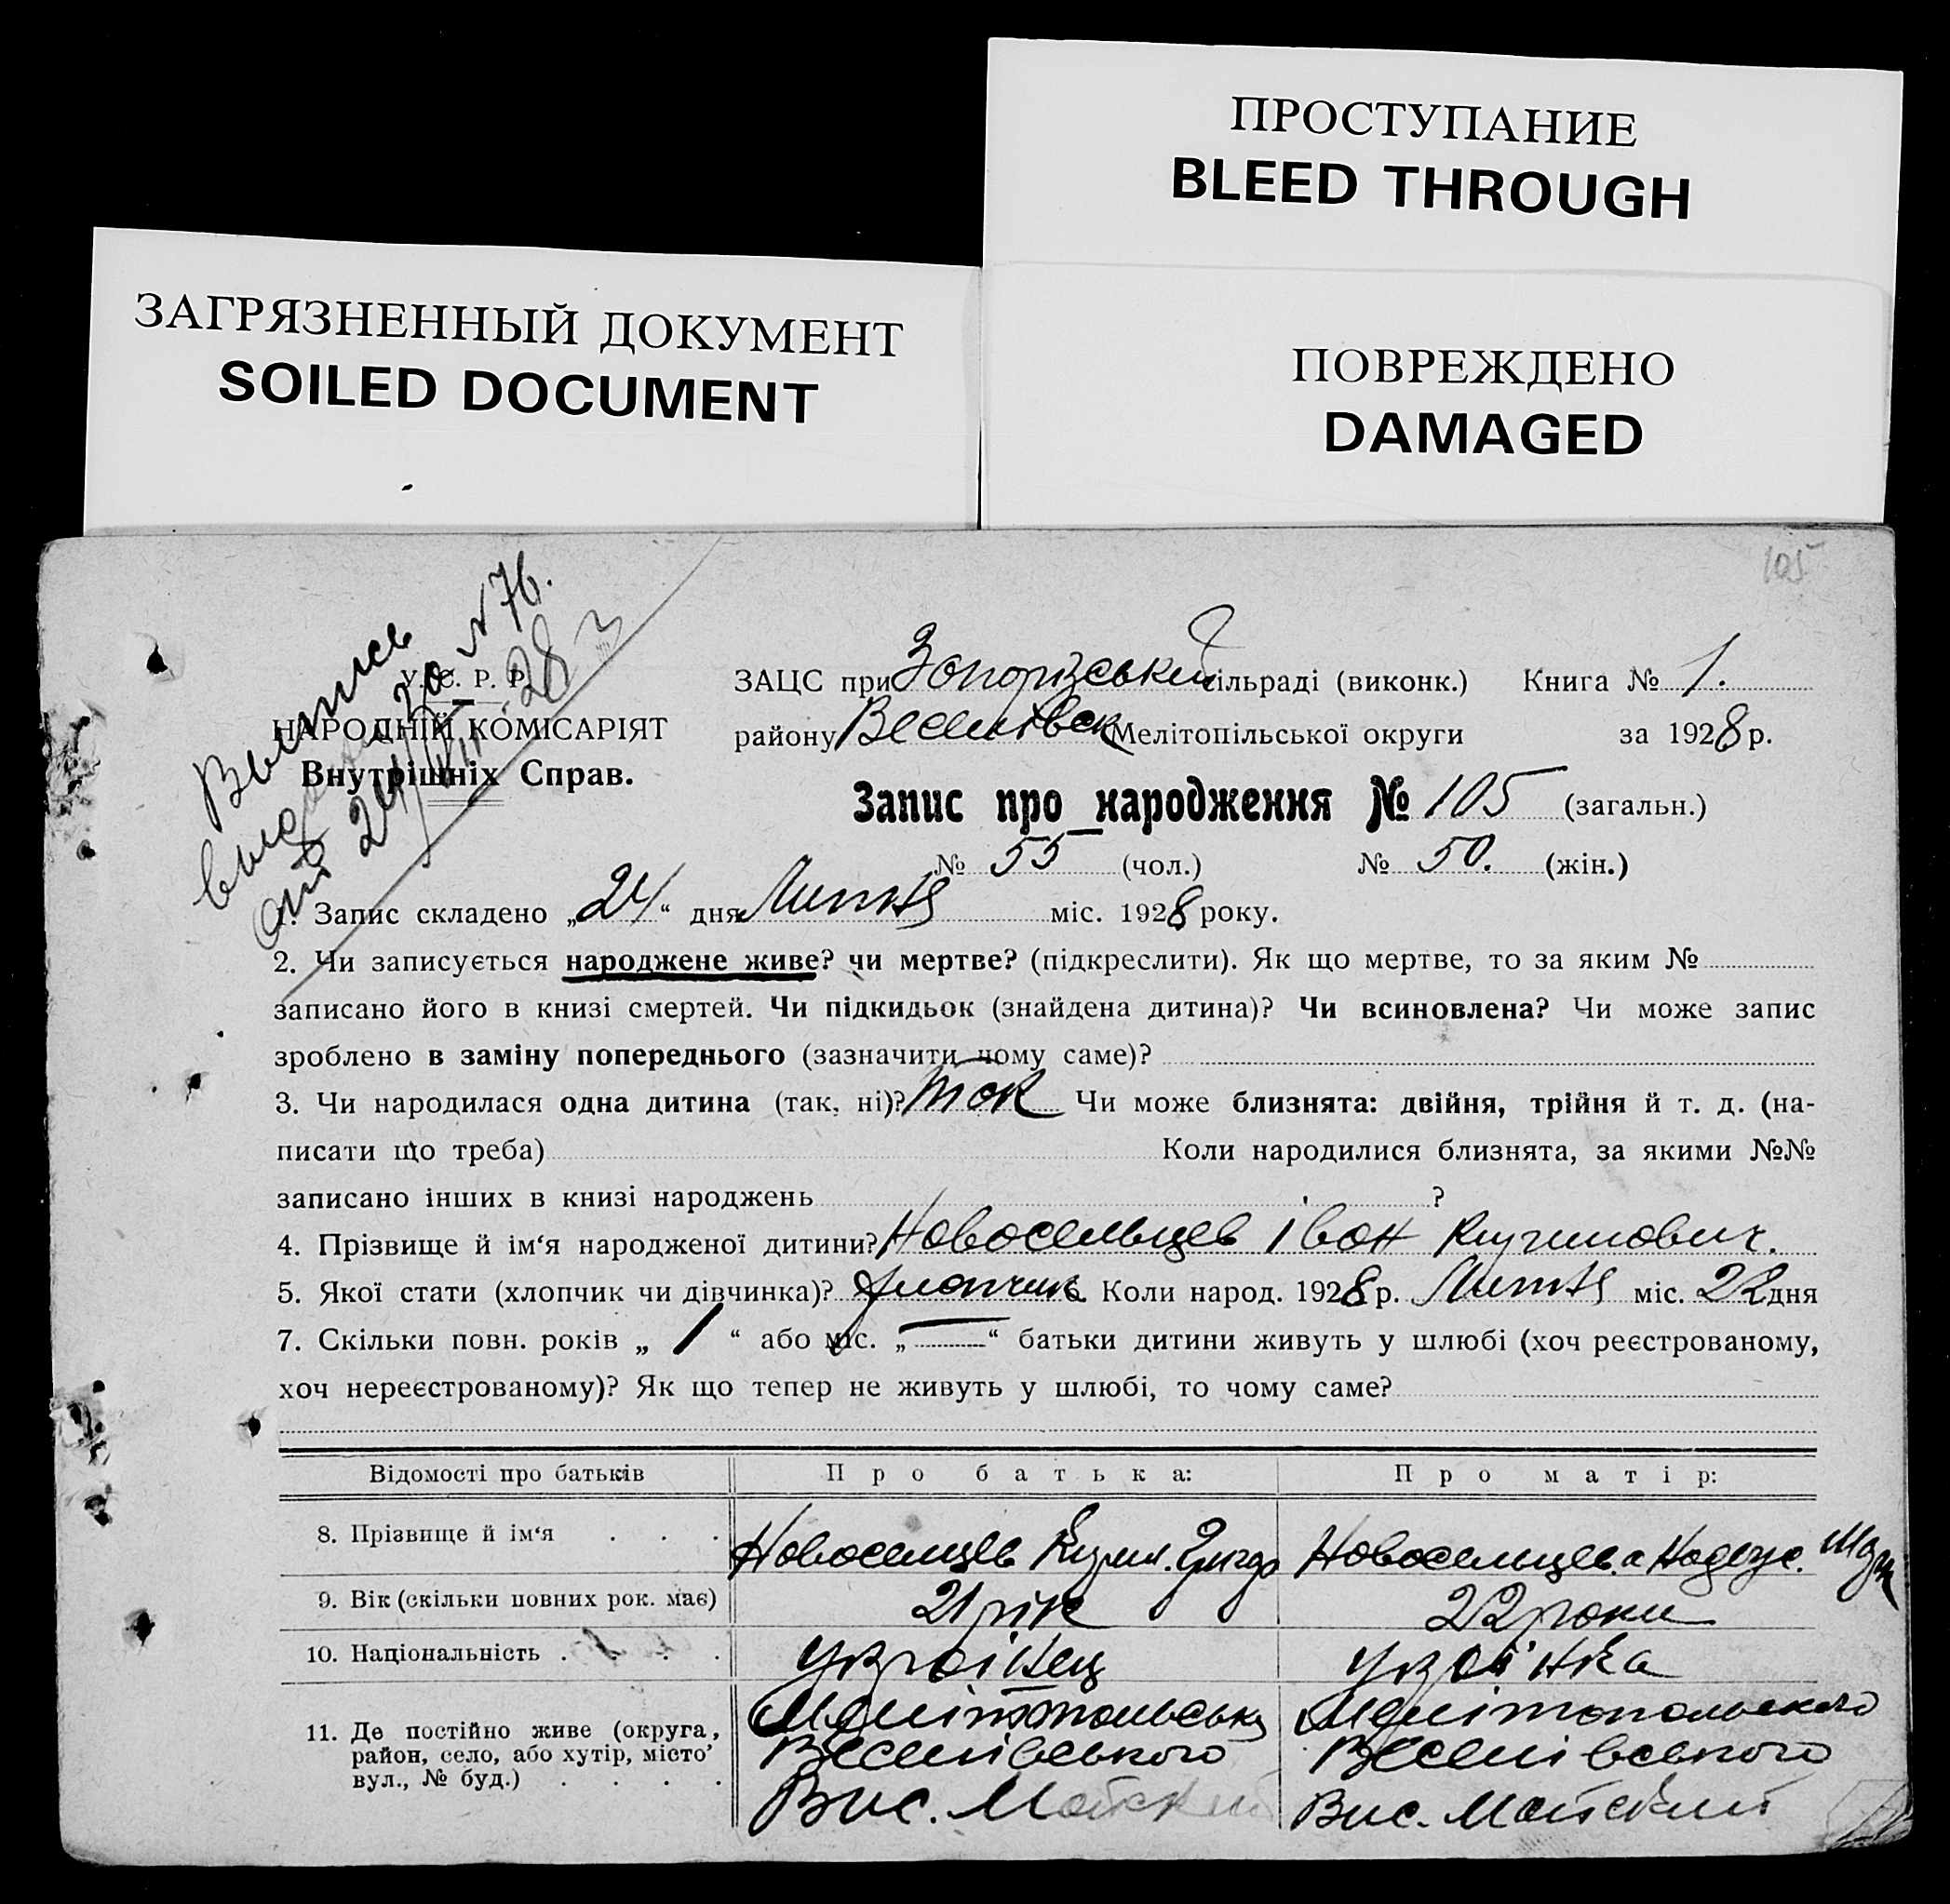 ПРОСТУПАНИЕ
BLEED THROUGH
ЗАГРЯЗНЕННЫЙ ДОКУМЕНТ
SOILED DOCUMENT
ПОВРЕЖДЕНО
DAMAGED
105
Выпись
за № 76.
от 24/VII-28
У. С. Р. Р.
НАРОДНІЙ КОМІСАРІЯТ
Внутрішніх Справ.
ЗАЦС при Запорізській сільраді (виконк.) Книга № 1.
району Веселівськ Мелітопільської округи за 1928 р.
Запис про народження № 105 (загальн.)
№ 55 (чол.) № 50. (жін.)
1. Запис складено „24“ дня Липня міс. 1928 року.
2. Чи записується народжене живе? чи мертве? (підкреслити). Як що мертве, то за яким №
записано його в книзі смертей. Чи підкидьок (знайдена дитина)? Чи всиновлена? Чи може запис
зроблено в заміну попереднього (зазначити чому саме)?
3. Чи народилася одна дитина (так, ні)? так Чи може близнята: двійня, трійня й т. д. (на-
писати що треба) Коли народилися близнята, за якими №№
записано інших в книзі народжень ?
4. Прізвище й ім‘я народженої дитини? Новосельцев Іван Кузимович.
5. Якої стати (хлопчик чи дівчинка)? хлопчик Коли народ. 1928 р. Липня міс. 22 дня
7. Скільки повн. років „ 1 “ або міс. „ — “ батьки дитини живуть у шлюбі (хоч реєстрованому,
хоч нереєстрованому)? Як що тепер не живуть у шлюбі, то чому саме?
Відомості про батьків Про батька: Про матір:
8. Прізвище й ім‘я . . . Новоселцев Кузим. Новосельцева Надеж.
9. Вік (скільки повних рок. має) 21 рік 22 роки
10. Національність . . . . українец українка
11. Де постійно живе (округа, район, село, або хутір, місто’ вул., № буд.) . . . .
Мелітопольськ Мелітопольского
Веселівського Веселівського
Вис. Майский Вис. Майский